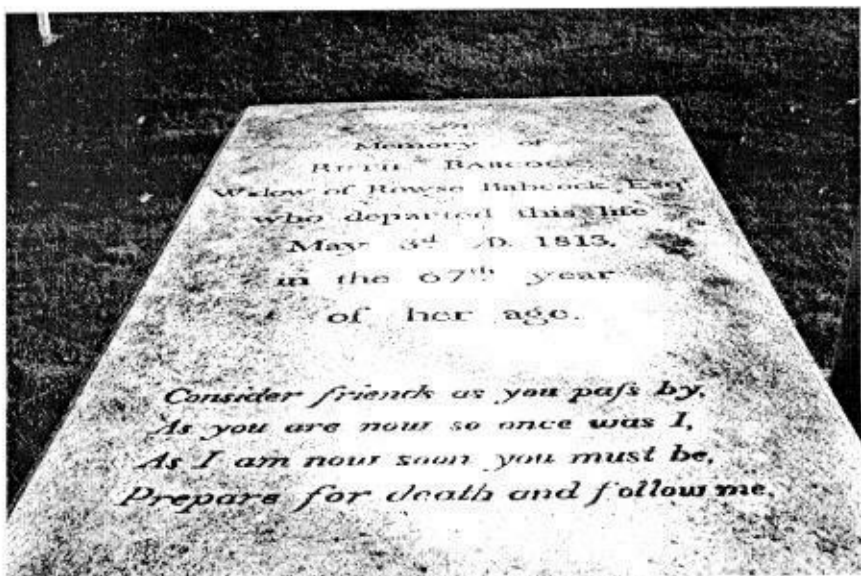 In
Memory of
RUTH BABCOCK
Widow of Rowse Babcock Esqr
who departed this life
May 3d .D. 1813.
in the 67th year
of her age.
Consider friends as you paſs by,
As you are now so once was I,
As I am now soon you must be,
Prepare for death and follow me.